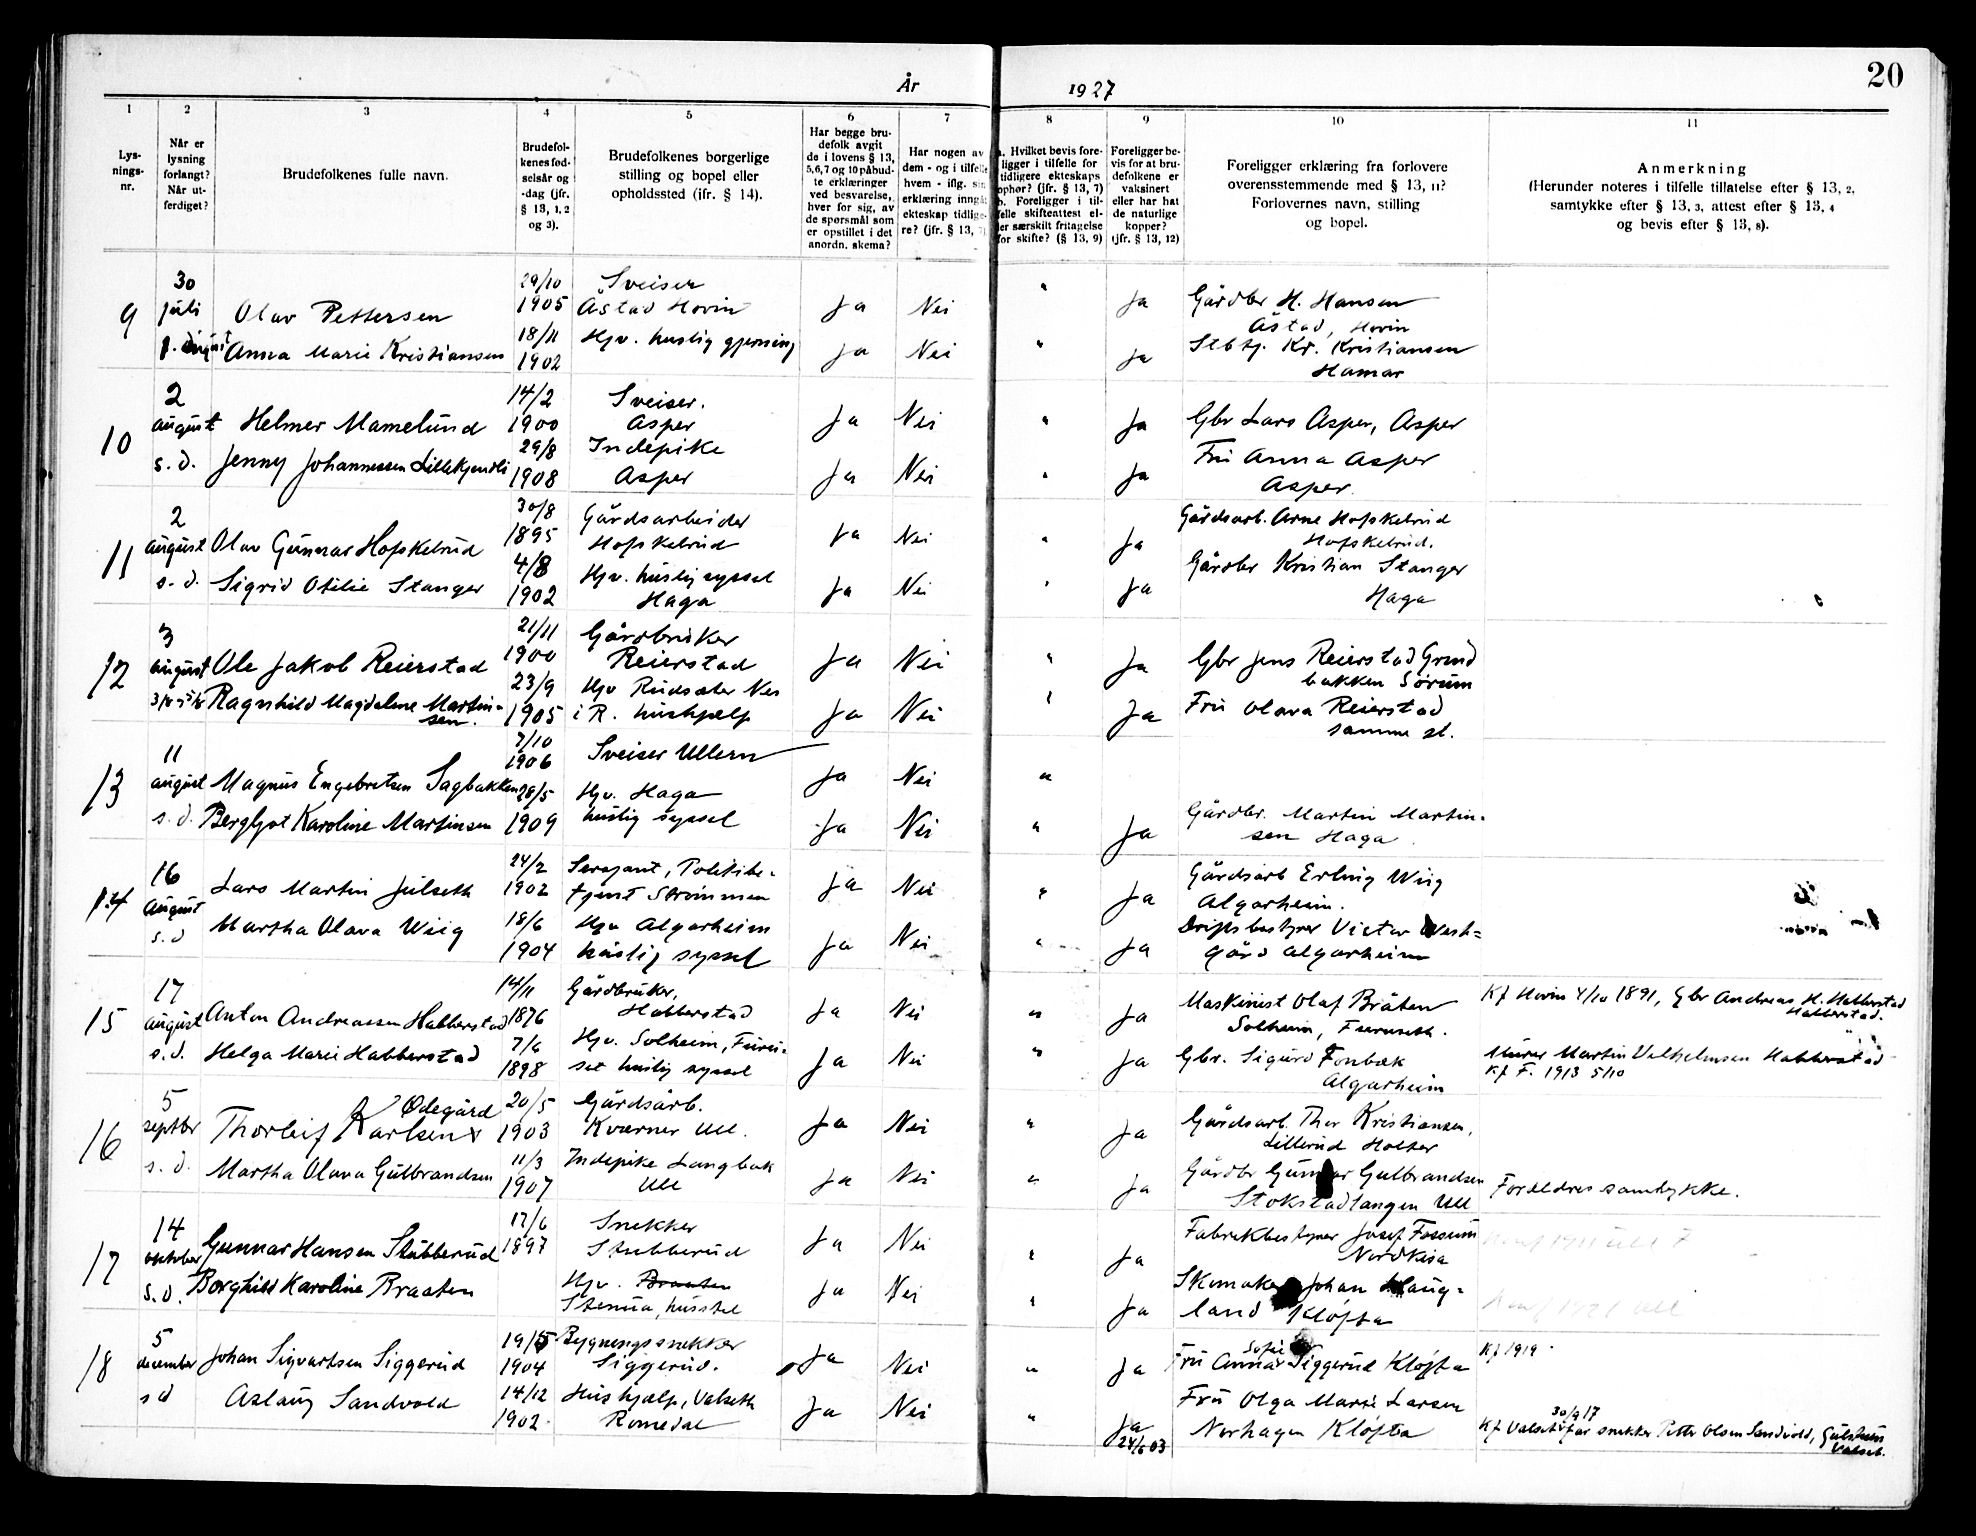 20
År 1927
1 2 3 4 5 6 7 8 9 10 11
Lys-
nings-
nr.
Når er
lysning
forlangt?
Når ut-
ferdiget?
Brudefolkenes fulle navn.
Brudefol-
kenes fød-
selsår og
-dag (jfr.
§ 13, 1, 2
og 3).
Brudefolkenes borgerlige
stilling og bopel eller
opholdssted (ifr. § 14).
Har begge bru-
defolk avgit
de i lovens § 13,
5,6,7 og 10 påbud-
te erklæringer
ved besvarelse,
hver for sig, av
de spørsmål som
er opstillet i det
anordn. skema?
Har nogen av
dem - og i tilfelle
hvem - iflg. sin
erklæring inngåt
ekteskap tidlige-
re? (jfr. § 13, 7)
a. Hvilket bevis fore-
ligger i tilfelle for
tidligere ekteskaps
ophør? (jfr. § 13, 7)
b. Foreligger i til-
felle skifteattest el-
ler særskilt fritagelse
for skifte? (§ 13, 9)
Foreligger be-
vis for at bru-
defolkene er
vaksinert
eller har hat
de naturlige
kopper?
(jfr. § 13, 12)
Foreligger erklæring fra forlovere
overensstemmende med § 13, 11?
Forlovernes navn, stilling
og bopel.
Anmerkning
(Herunder noteres i tilfelle tillatelse efter § 13, 2,
samtykke efter § 13, 3, attest efter § 13, 4
og bevis efter § 13, 8).
9
30
juli
1. august
Olav Pettersen
Anna Marie Kristiansen
29/10
1905
18/11
1902
Sveiser
Åstad Hovin
Hjv. huslig gjerning
Ja Nei " Ja
Ja Nei " Ja
Gårdbr H. Hansen
Åstad, Hovin
Stbtj. Kr. Kristiansen
Hamar
10
2
august
s. d.
Helmer Mamelund
Jenny Johannessen Lillekjendli
14/2
1900
29/8
1908
Sveiser.
Asper
Indepike
Asper
Ja Nei " Ja
Ja Nei " Ja
Gbr Lars Asper, Asper
Fru Anna Asper
Asper.
11
2
august
s. d.
Olav Gunnar Hofskelrud
Sigrid Otilie Stanger
30/8
1895
4/8
1902
Gårdsarbeider
Hofskelrud
Hjv. huslig syssel
Haga
Ja Nei " Ja
Ja Nei " Ja
Gårdsarb. Arne Hofskelrud
Hofskelrud.
Gårdbr Kristian Stanger
Haga
12
3
august
Ole Jakob Reierstad
Ragnhild Magdalene Martin-
sen.
21/11
1900
23/9
1905
Gårdbruker
Reierstad
Hjv Rudsæter Nes
i R. hushjelp
Ja Nei " Ja
Ja Nei " Ja
Gbr Jens Reierstad Grind
bakken Sørum
Fru Olava Reierstad
samme st.
13
11
august
s. d.
Magnus Engebretsen Sagbakken
Bergljot Karoline Martinsen
7/10
1906
28/5
1909
Sveiser Ullern
Hjv. Haga
huslig syssel
Ja Nei "
Ja Nei " Ja
Gårdbr. Martin Martin-
sen Haga
14
16
August
s. d
Lars Martin Julseth
Martha Olava Wiig
24/2
1902
18/6
1904
Sersjant, Politibe-
tjent Strømmen
Hjv Algarheim
huslig syssel
Ja Nei " Ja
Ja Nei " Ja
Gårdsarb Erling Wiig
Algarheim.
Driftsbestyrer Victor Vest-
gård Algarheim
15
17
august
s. d.
Anton Andreassen Habberstad
Helga Marie Habberstad
14/11
1876
7/6
1898
Gårdbruker,
Habberstad
Hjv. Solheim, Furu-
set huslig syssel
Ja Nei " Ja
Ja Nei " Ja
Maskinist Olaf Bråten
Solheim, Furuseth.
Gbr. Sigurd Fonbæk
Algarheim
Kf Hovin 4/10 1891, Gbr Andreas H. Habberstad
Habberstad.
Murer Martin Vilhelmsen Habberstad
Kf F. 1913 5/10
16
5
septbr
s. d.
Ødegård
Thorleif Karlsen
Martha Olava Gulbrandsen
20/5
1903
11/3
1907
Gårdsarb.
Kværner Ull.
Indepike Langbak
Ull
Ja Nei " Ja
Ja Nei " Ja
Gårdsarb. Thor Kristiansen,
Lillerud Holter
Gårdbr Gunnar Gulbrandsen
Stokstadlangen Ull
Foreldres samtykke.
17
14
oktober
s. d.
Gunnar Hansen Stubberud
Borghild Karoline Braaten
17/6
1897
Snekker
Stubberud
Hjv. Braaten
Stenua, husstel
Ja Nei " Ja
Ja Nei " Ja
Fabrikbestyrer Josef Fossum
Nordkisa
Skomaker Johan Haug-
land Kløfta
18
5
desember
s d
Johan Sigvartsen Siggerud
Aslaug Sandvold
19/5
1904
14/12
1902.
Bygningssnekker
Siggerud.
Hushjælp, Valseth
Romedal
Ja Nei " Ja
Ja Nei " Ja
24/6 03
Sofie
Fru Anna Siggerud Kløfta
Fru Olga Marie Larsen
Norhagen Kløfta
Kf 1919.
30/9 17
Kf Valset far snekker Petter Olsen Sandvold, Gulsheim
Valset.